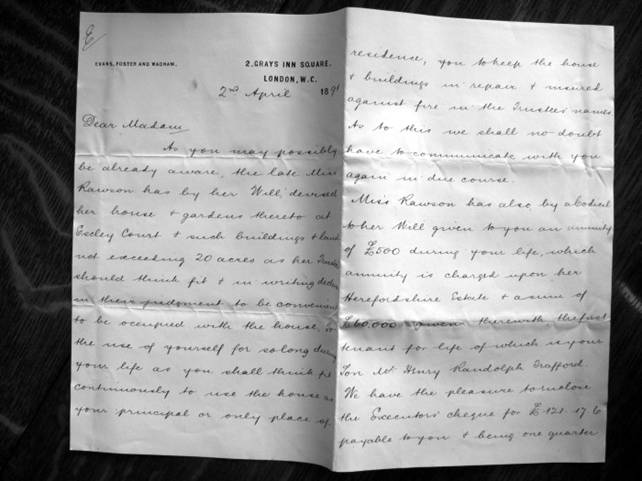 E
EVANS, FOSTER AND WADHAM.
2, GRAYS INN SQUARE.
LONDON, W.C.
2nd April 1891
Dear Madam
As you may possibly
be already aware, the late Miss
Rawson has by her Will devised
her house & gardens thereto at
Court & such buildings & land
not exceeding 20 acres as her Trustees
should think fit & in writing declare
in their judgment to be convenient
to be occupied with the house, to
the use of yourself for so long during
your life as you shall think fit
continuously to use the house as
your principal or only place of
residence, you to keep the house
& buildings in repair & insured
against fire in the Trustees' names.
As to this we shall no doubt
have to communicate with you
again in due course.
Miss Rawson has also by a Codicil
to her Will given to you an annuity
of £500 during your life, which
annuity is charged upon her
Herefordshire Estate & a sum of
£60,000 given therewith the first
tenant for life of which is your
Son Mr Henry Randolph Trafford.
We have the pleasure to enclose
the Executors' cheque for £121.17.6
payable to you & being one quarter